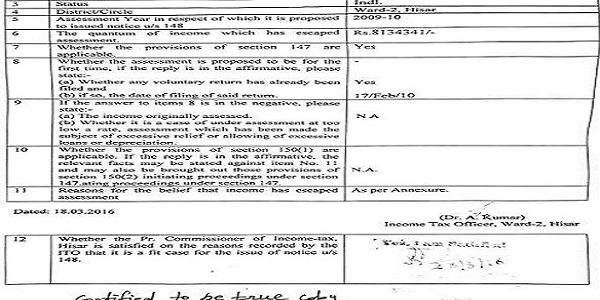 3 Status Indl.
4 District/Circle Ward-2, Hisar
5 Assessment Year in respect of which it is proposed 2009-10
to issued notice u/s 148
6 The quantum of income which has escaped Rs.8134341/-
assessment.
7 Whether the provisions of section 147 are Yes
applicable.
8 Whether the assessment is proposed to be for the -
first time, if the reply is in the affirmative, please
state:-
(a) Whether any voluntary return has already been Yes
filed and
(b) if so, the date of filing of said return. 17/Feb/10
9 If the answer to items 8 is in the negative, please
state:-
(a) The income originally assessed. N A
(b) Whether it is a case of under assessment at too
low a rate, assessment which has been made the
subject of excessive relief or allowing of excessive
loans or depreciation.
10 Whether the provisions of section 150(1) are
applicable. If the reply is in the affirmative, the
relevant facts may be stated against item No. 11
and may also be brought out those provisions of N.A.
section 150(2) initiating proceedings under section
147.ating proceedings under section 147.
11 Reasons for the belief that income has escaped As per Annexure.
assessment
Dated: 18.03.2016
(Dr. A. Kumar)
Income Tax Officer, Ward-2, Hisar
12 Whether the Pr. Commissioner of Income-tax, Yes, I am Satisfied
Hisar is satisfied on the reasons recorded by the
ITO that it is a fit case for the issue of notice u/s
148.
Certified to be true copy